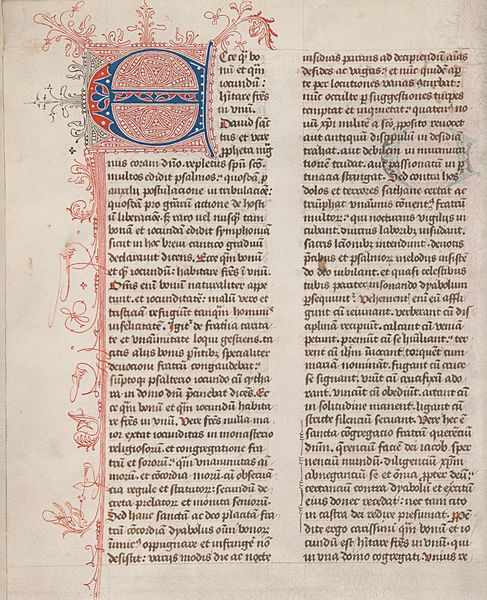 Ecce q̃ bo
nũ et q̃m
iocundũ:
hĩtare fr̃es
in vnũ.
David sãc
tus et vere
ꝓpheta mg̃
nus coram dño. repletus spũ scõ
multos edidit psalmos: quosdã ꝑ
auxilij postulacione in tribulacõe:
quosdã pro grãrũ actione de hosti
ũ liberacõe. Et raro vel nusq̃ tam
bonũ et iocundũ edidit symphoniã
sicut in hoc breui cantico graduũ
declarauit dicens. Ecce q̃m bonũ
et q̃ iocundũ: habitare fr̃es ĩ vnũ.
Om̃s eni bonũ naturaliter appe
tunt. et iocunditatẽ: malũ vero et
tristiciã refugiũt tamq̃m hominis
infelicitatẽ. Igit᷑ de fratna carita
te et vnanimitate loqui gestiens.
tatis alius bonus põtib᷒ specialiter
deuocioni fratrũ congaudebat:
sũpto q̨ psalterio iocundo cũ cytha
ra in domo dñi p̃cinebat dicẽs. Ec
ce q̃m bonũ et q̃m iocundũ habita
re fr̃es in vnũ. Vere fr̃es nulla ma
ior extat iocunditas in monasterio
religiosorũ. et congregatione fra
trũ et sororũ: q̃m vnanimitas aĩ
morũ. et cõcordia morũ. cũ obseruã
tia regule et statutorũ: secundũ de
creta prelatorũ et monita seniorũ.
Sed hanc sanctã ac deo placitã fra
trũ cõcordiã dyabolus om̃i bonorũ
inimic᷒ oppugnare et infringẽ nõ
desistit: varijs modis die ac nocte
insidias parans ad decipiendũ aĩas
desides ac vagas: et nũc quidẽ aꝑ
te per locutiones varias ꝯturbat:
nũc occulte ꝑ suggestiones turpes
temptat et inquietat: quaten᷒ no
uũ xp̃i militẽ a scõ ꝓposito reuocet
aut antiquũ discipulũ in desidiã
trahat. aut debilem in murmura
tionem trudat. aut passionatũ in ꝑ
tinacia stringat. Sed contra hos
dolos et terrores sathane certat ac
triũphat vnanimis cõuent᷒ fratrũ
multorũ: qui nocturnis vigilijs in
cubant. diuturnis laboribus insudant.
sacris lcõnibus intendunt. deuotis
p̃cibus et psalmorũ melodijs insiste
do deo iubilant. et quasi celestibus
tubis pariter insonando dyabolum
ꝑsequunt᷑. Vehement᷑ eni eũ affli
gunt cũ ieiunant. verberant cũ dis
ciplinã recipiunt. calcant cũ veniã
petunt. premunt cũ se hũiliant: ter
rent cũ ihm̃ inuocant. torquẽt cum
mariam nominãt. fugant cũ cruce
se signant. vrũt cũ crucifixũ ado
rant. vincũt cũ obediũt. artant cũ
in solitudine manent. ligant cũ
stricte silenciũ seruant. Vere hec ẽ
sancta cõgregacio fratrũ querẽciũ
dñum. q̃renciũ faciẽ dei iacob. sper
nenciũ mundũ. diligenciũ xp̃m:
abnegantiũ se et om̃ia ꝓpter deũ:
certantiũ contra dyabolũ et exercitũ
eius donec recedat: nec tam cito
in castra dei redire presumat. Gau
dete ergo carissimi q̃m bonũ et io
cundũ est hĩtare fr̃es in vnũ. qui
in vna domo cogregati. vnius re